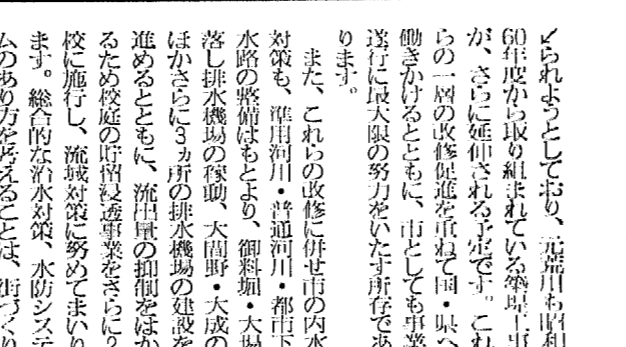 られようとしており、元荒川も昭和
60年度から取り組まれている築堤工事
が、さらに延伸される予定です。これ
らの一層の改修促進を重ねて国・県へ
働きかけるとともに、市としても事業
遂行に最大限の努力をいたす所存であ
ります。
また、これらの改修に併せ市の内水
対策も、準用河川・普通河川・都市下
水路の整備はもとより、御料堀・大場
落し排水機場の稼動、大間野・大成の
ほかさらに3ヵ所の排水機場の建設を
進めるとともに、流出量の抑制をはか
るため校庭の貯留浸透事業をさらに2
校に施行し、流域対策に努めてまいり
ます。総合的な治水対策、水防システ
ムのあり方を考えることは、街づくり